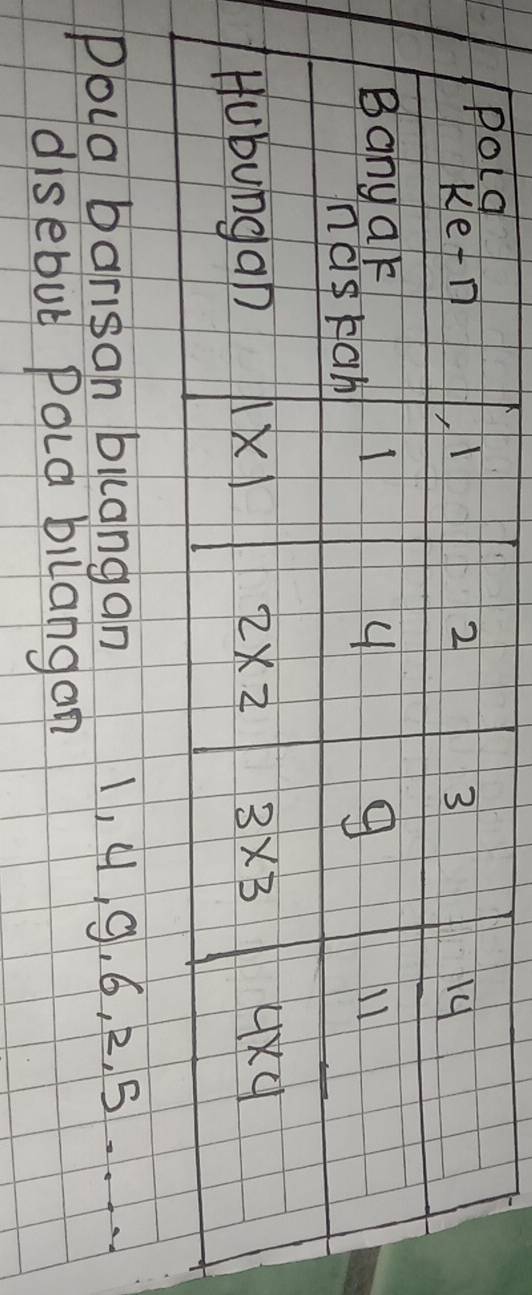 Pola Ke-n , 1 2 3 14
Banyak naskah 1 4 9 11
Hubungan 1x1 2x2 3x3 4x4
Pola barisan bilangan 1, 4, 9, 6, 2, 5 ----
disebut Pola bilangan